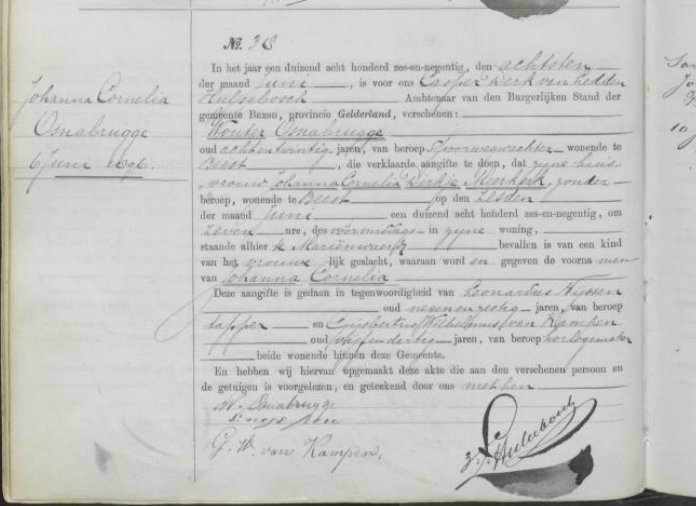 No. 38
In het jaar een duizend acht honderd zes-en-negentig, den achtsten
der maand Juni, is voor ons Casper Derk van Hedden
Hulsebosch Ambtenaar van den Burgerlijken Stand der
gemeente BEESD, provincie Gelderland, verschenen:
Wouter Osnabrugge
oud achtentwintig jaren, van beroep Spoorwegwachter wonende te
Beest, die verklaarde aangifte te doen, dat zijne huis-
vrouw Johanna Cornelia Dirkje Meerkerk, zonder
beroep, wonende te Beest op den zesden
der maand Juni een duizend acht honderd zes-en-negentig, om
zeven ure, des voormiddags in zijne woning,
staande alhier te Mariënwaerdt bevallen is van een kind
van het vrouwelijk geslacht, waaraan word en gegeven de voorna men
van Johanna Cornelia
Deze aangifte is gedaan in tegenwoordigheid van Leonardus
oud negenenzestig jaren, van beroep
tapper en Gijsbertus Wilhelmus van Kampen
oud vijfendertig jaren, van beroep horlogemaker
beide wonende binnen deze Gemeente.
En hebben wij hiervan opgemaakt deze akte die aan den verschenen persoon en
de getuigen is voorgelezen, en geteekend door ons met hen
W. Osnabrugge
G. W. van Kampen.
Hulsebosch
Johanna Cornelia
Osnabrugge
6 Juni 1896.